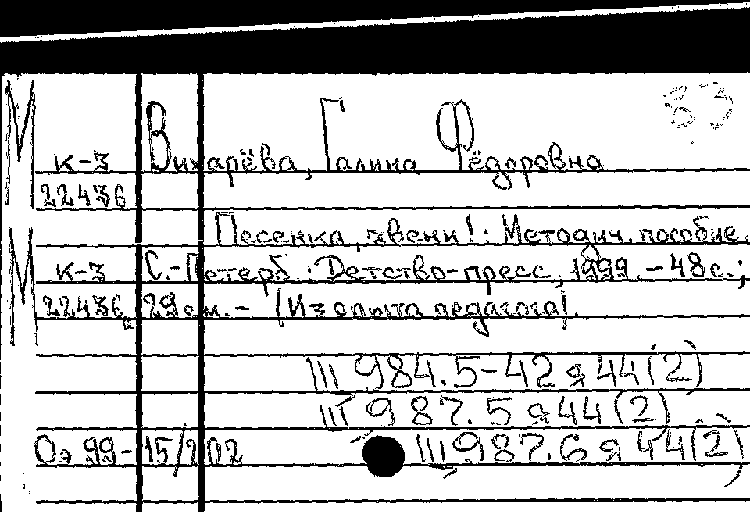 83
М к-3 Вихарёва, Галина Фёдоровна
22436
Песенка, звени!: Методич. пособие.
М к-3 С.-Петерб.: Детство-пресс, 1999. - 48 с.;
22436а 29 см. - (Из опыта педагога).
Ш 984.5-42 я 44(2)
Ш 987.5 я 44(2)
Оэ 99-15/202 Ш 987.6 я 44(2)